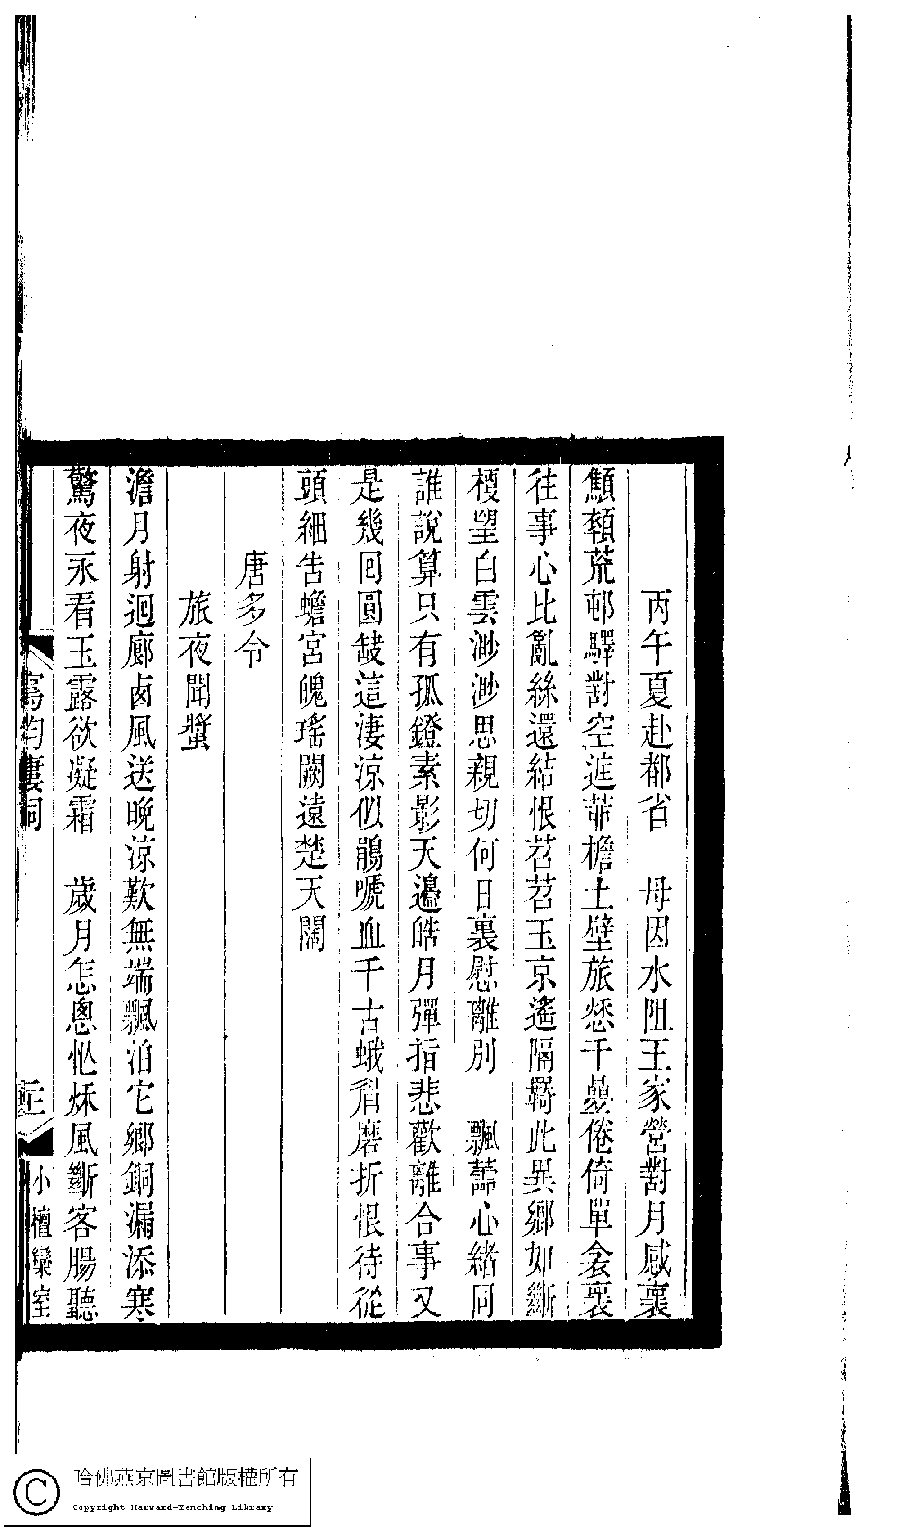 丙午夏赴都省　母因水阻王家營對月感褱
顦顇荒邨驛對空逰茆檐土壁旅愁千疉倦倚單衾褱
往事心比亂絲還結恨苕苕玉京遙隔羇此異鄉如斷
梗望白雲渺渺思親切何日裏慰離別　飄蘦心緒同
誰說算只有孤鐙素影天邊皓月彈指悲歡離合事又
是幾回圓缺這淒涼似鵑嗁血千古蛾眉磨折恨待從
頭細告蟾宮魄瑤闕遠楚天闊
唐多令
旅夜聞蛩
澹月射迴廊卤風送晚涼歎無端飄泊它鄉銅漏添寒
驚夜永看玉露欲凝霜　歲月怎悤忙秌風斷客腸聽
寫韵廔詞
小檀欒室
哈佛燕京圖書館版權所有
Copyright Harvard-Yenching Library